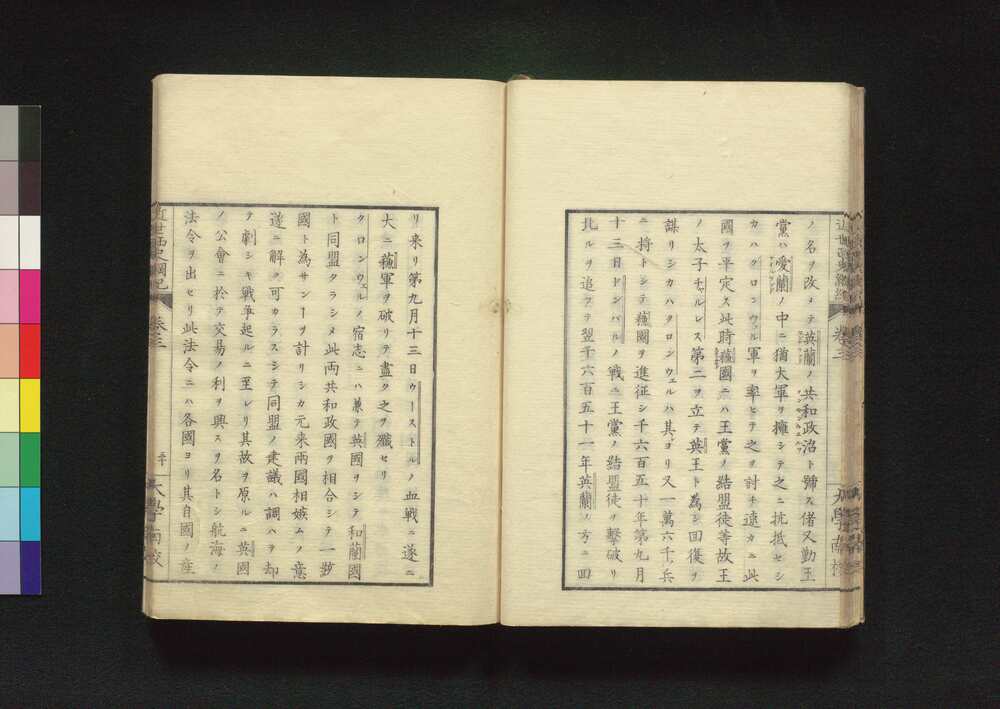 ノ名ヲ改メテ英蘭ノ共和政治ト號ス偖又勤王
黨ハ愛蘭ノ中ニ猶大軍ヲ擁シテ之ニ抗抵セシ
カハクロンウェル軍ヲ率ヒテ之ヲ討チ遠カニ此
國ヲ平定ス此時蘓國ニハ王黨ノ結盟徒等故王
ノ太子チャルレス第二ヲ立テ英王ト為シ回復ヲ
謀リシカハクロンウェルハ其ヨリ又一萬六千ノ兵
ニ將トシテ蘓國ヲ進征シ千六百五十年第九月
十三日ドンバルノ戰ニ王黨ノ結盟徒ヲ擊破リ
北ルヲ追フテ翌千六百五十一年英蘭ノ方ニ回
近世西史綱紀 卷三
大學南校
リ来リ第九月十三日ウーストルノ血戰ニ遂ニ
大ニ蘓軍ヲ破リテ盡ク之ヲ殲セリ
クロンウェルノ宿志ニハ兼テ英國ヲシテ和蘭國
ト同盟タラシメ此両共和政國ヲ相合シテ一夥
國ト為サンヿヲ計リシカ元来兩國相嫉ムノ意
遂ニ解ク可カラスシテ同盟ノ建議ハ調ハテ却
テ劇シキ戰爭起ルニ至レリ其故ヲ原ルニ英國
ノ公會ニ於テ交易ノ利ヲ興スヲ名トシ航海ノ
法令ヲ出セリ此法令ニハ各國ヨリ其自國ノ產
近世西史綱紀 卷三
大學南校